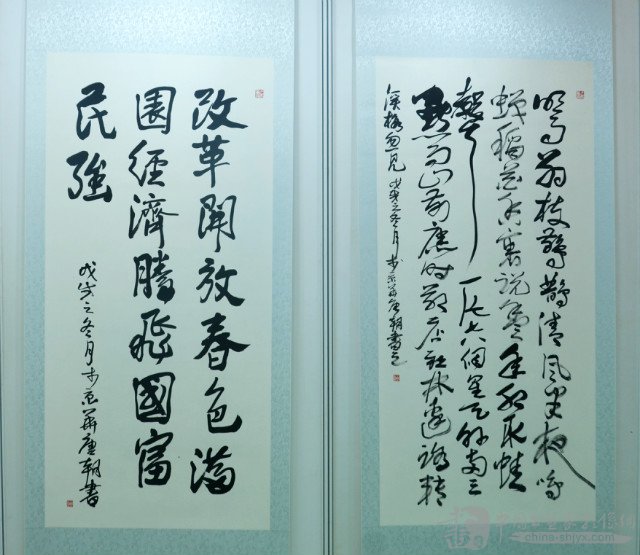 改革開放春色滿
園經濟騰飛國富
民強
戊戌之冬月於京華唐朝書
明月别枝驚鵲清風半夜鳴
蟬稻花香裏説豐年聽取蛙
聲一片七八個星天外兩三
點雨山前舊時茅店社林邊路轉
溪橋忽見 戊戌之冬月於京華唐朝書之
china-shjyx.com